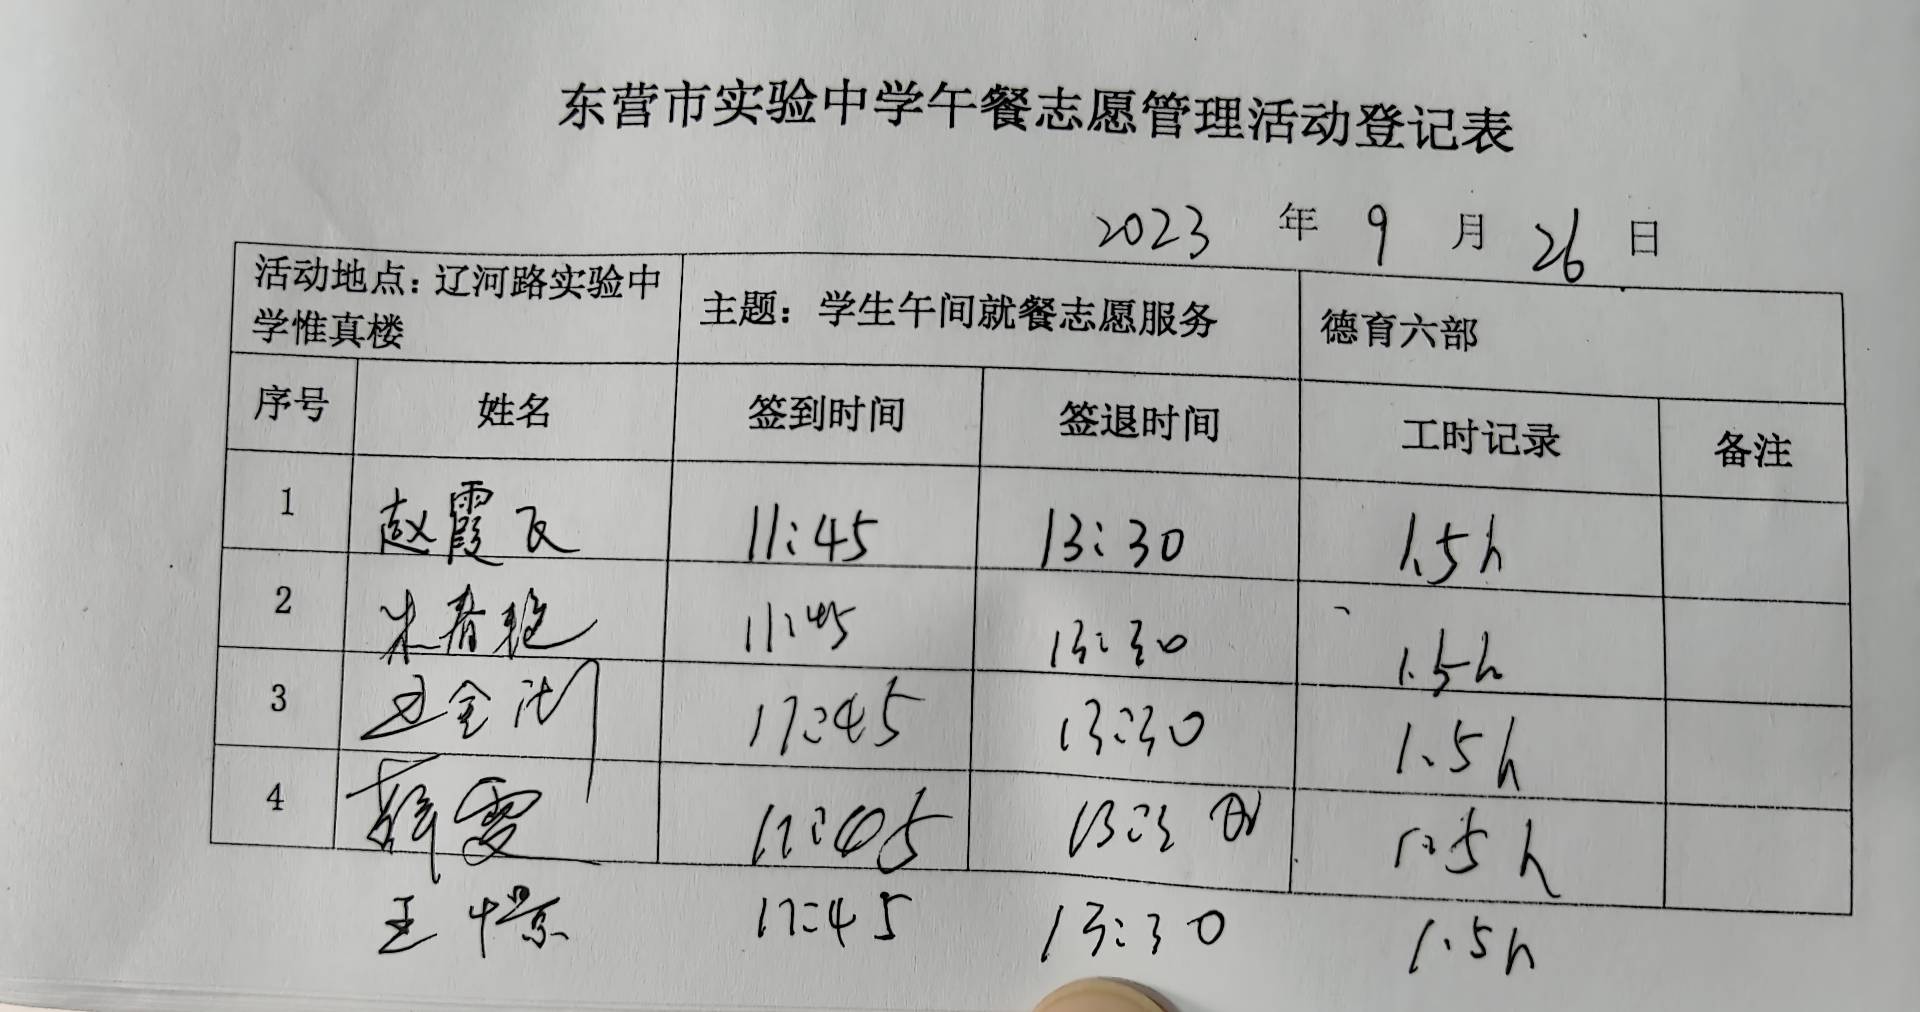 东营市实验中学午餐志愿管理活动登记表
2023 年 9 月 26 日
活动地点：辽河路实验中
学惟真楼
主题：学生午间就餐志愿服务
德育六部
序号 姓名 签到时间 签退时间 工时记录 备注
1 赵霞飞 11:45 13:30 1.5h
2 朱春艳 11:45 13:30 1.5h
3 11:45 13:30 1.5h
4 11:45 1.5h
王 11:45 13:30 1.5h